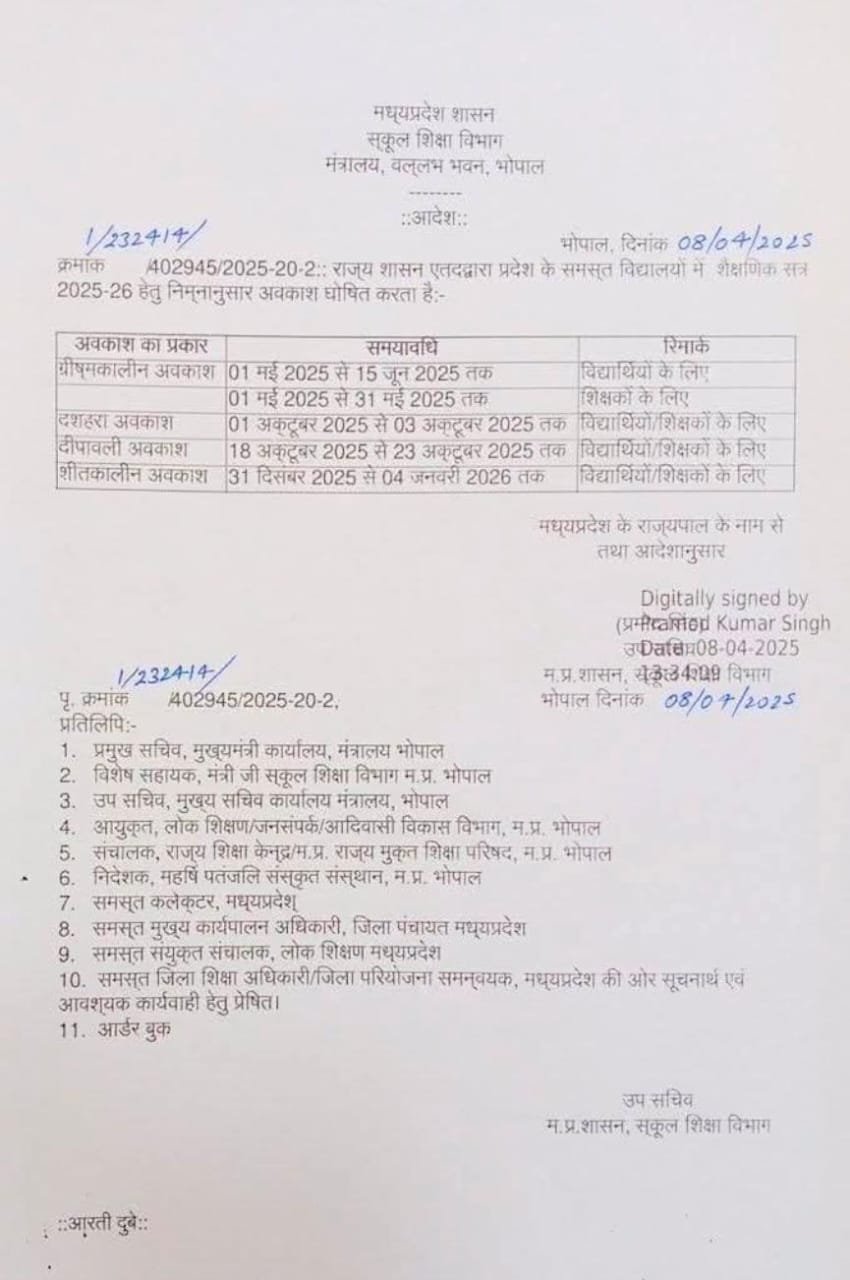 मध्यप्रदेश शासन
स्कूल शिक्षा विभाग
मंत्रालय, वल्लभ भवन, भोपाल
--------
::आदेश::
1/232414/
भोपाल, दिनांक 08/04/2025
क्रमांक /402945/2025-20-2:: राज्य शासन एतदद्वारा प्रदेश के समस्त विद्यालयों में शैक्षणिक सत्र
2025-26 हेतु निम्नानुसार अवकाश घोषित करता है:-
अवकाश का प्रकार समयावधि रिमार्क
ग्रीष्मकालीन अवकाश 01 मई 2025 से 15 जून 2025 तक विद्यार्थियों के लिए
01 मई 2025 से 31 मई 2025 तक शिक्षकों के लिए
दशहरा अवकाश 01 अक्टूबर 2025 से 03 अक्टूबर 2025 तक विद्यार्थियों/शिक्षकों के लिए
दीपावली अवकाश 18 अक्टूबर 2025 से 23 अक्टूबर 2025 तक विद्यार्थियों/शिक्षकों के लिए
शीतकालीन अवकाश 31 दिसंबर 2025 से 04 जनवरी 2026 तक विद्यार्थियों/शिक्षकों के लिए
मध्यप्रदेश के राज्यपाल के नाम से
तथा आदेशानुसार
Digitally signed by
Kumar Singh
Date: 08-04-2025
म.प्र.शासन, स्कूल शिक्षा विभाग
13:34:09
1/232414/
पृ. क्रमांक /402945/2025-20-2, भोपाल दिनांक 08/04/2025
प्रतिलिपि:-
1. प्रमुख सचिव, मुख्यमंत्री कार्यालय, मंत्रालय भोपाल
2. विशेष सहायक, मंत्री जी स्कूल शिक्षा विभाग म.प्र. भोपाल
3. उप सचिव, मुख्य सचिव कार्यालय मंत्रालय, भोपाल
4. आयुक्त, लोक शिक्षण/जनसंपर्क/आदिवासी विकास विभाग, म.प्र. भोपाल
5. संचालक, राज्य शिक्षा केन्द्र/म.प्र. राज्य मुक्त शिक्षा परिषद, म.प्र. भोपाल
6. निदेशक, महर्षि पतंजलि संस्कृत संस्थान, म.प्र. भोपाल
7. समस्त कलेक्टर, मध्यप्रदेश
8. समस्त मुख्य कार्यपालन अधिकारी, जिला पंचायत मध्यप्रदेश
9. समस्त संयुक्त संचालक, लोक शिक्षण मध्यप्रदेश
10. समस्त जिला शिक्षा अधिकारी/जिला परियोजना समन्वयक, मध्यप्रदेश की ओर सूचनार्थ एवं
आवश्यक कार्यवाही हेतु प्रेषित।
11. आर्डर बुक
उप सचिव
म.प्र.शासन, स्कूल शिक्षा विभाग
::आरती दुबे::